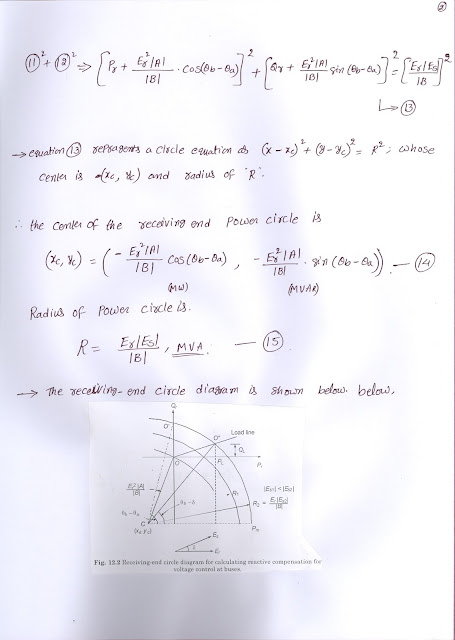 2
(11)² + (12)² ⇒ [Pr + Er²|A|/|B| · cos(θb-θa)]² + [Qr + Er²|A|/|B| sin(θb-θa)]² = [Er|Es|/|B]²
↳ (13)
→ equation (13) represents a circle equation as (x - xc)² + (y - yc)² = R² ; whose
center is (xc, yc) and radius of "R".
∴ the center of the receiving end power circle is
(xc, yc) = (- Er²|A|/|B| cos(θb-θa) , - Er²|A|/|B| · sin(θb-θa)). — (14)
(MW) (MVAR)
Radius of power circle is.
R = Er|Es|/|B| , MVA. — (15)
→ the receiving-end circle diagram is shown below. below,
Qr
O'
O"
Load line
QL
O
PL
Pr
Er²|A|/|B|
R1
|Es1| < |Es2|
R2 = Er|Es2|/|B|
θb - δ
θb - θa
C
(xc yc)
Pm
Es
δ
Er
Fig. 12.2 Receiving-end circle diagram for calculating reactive compensation for
voltage control at buses.